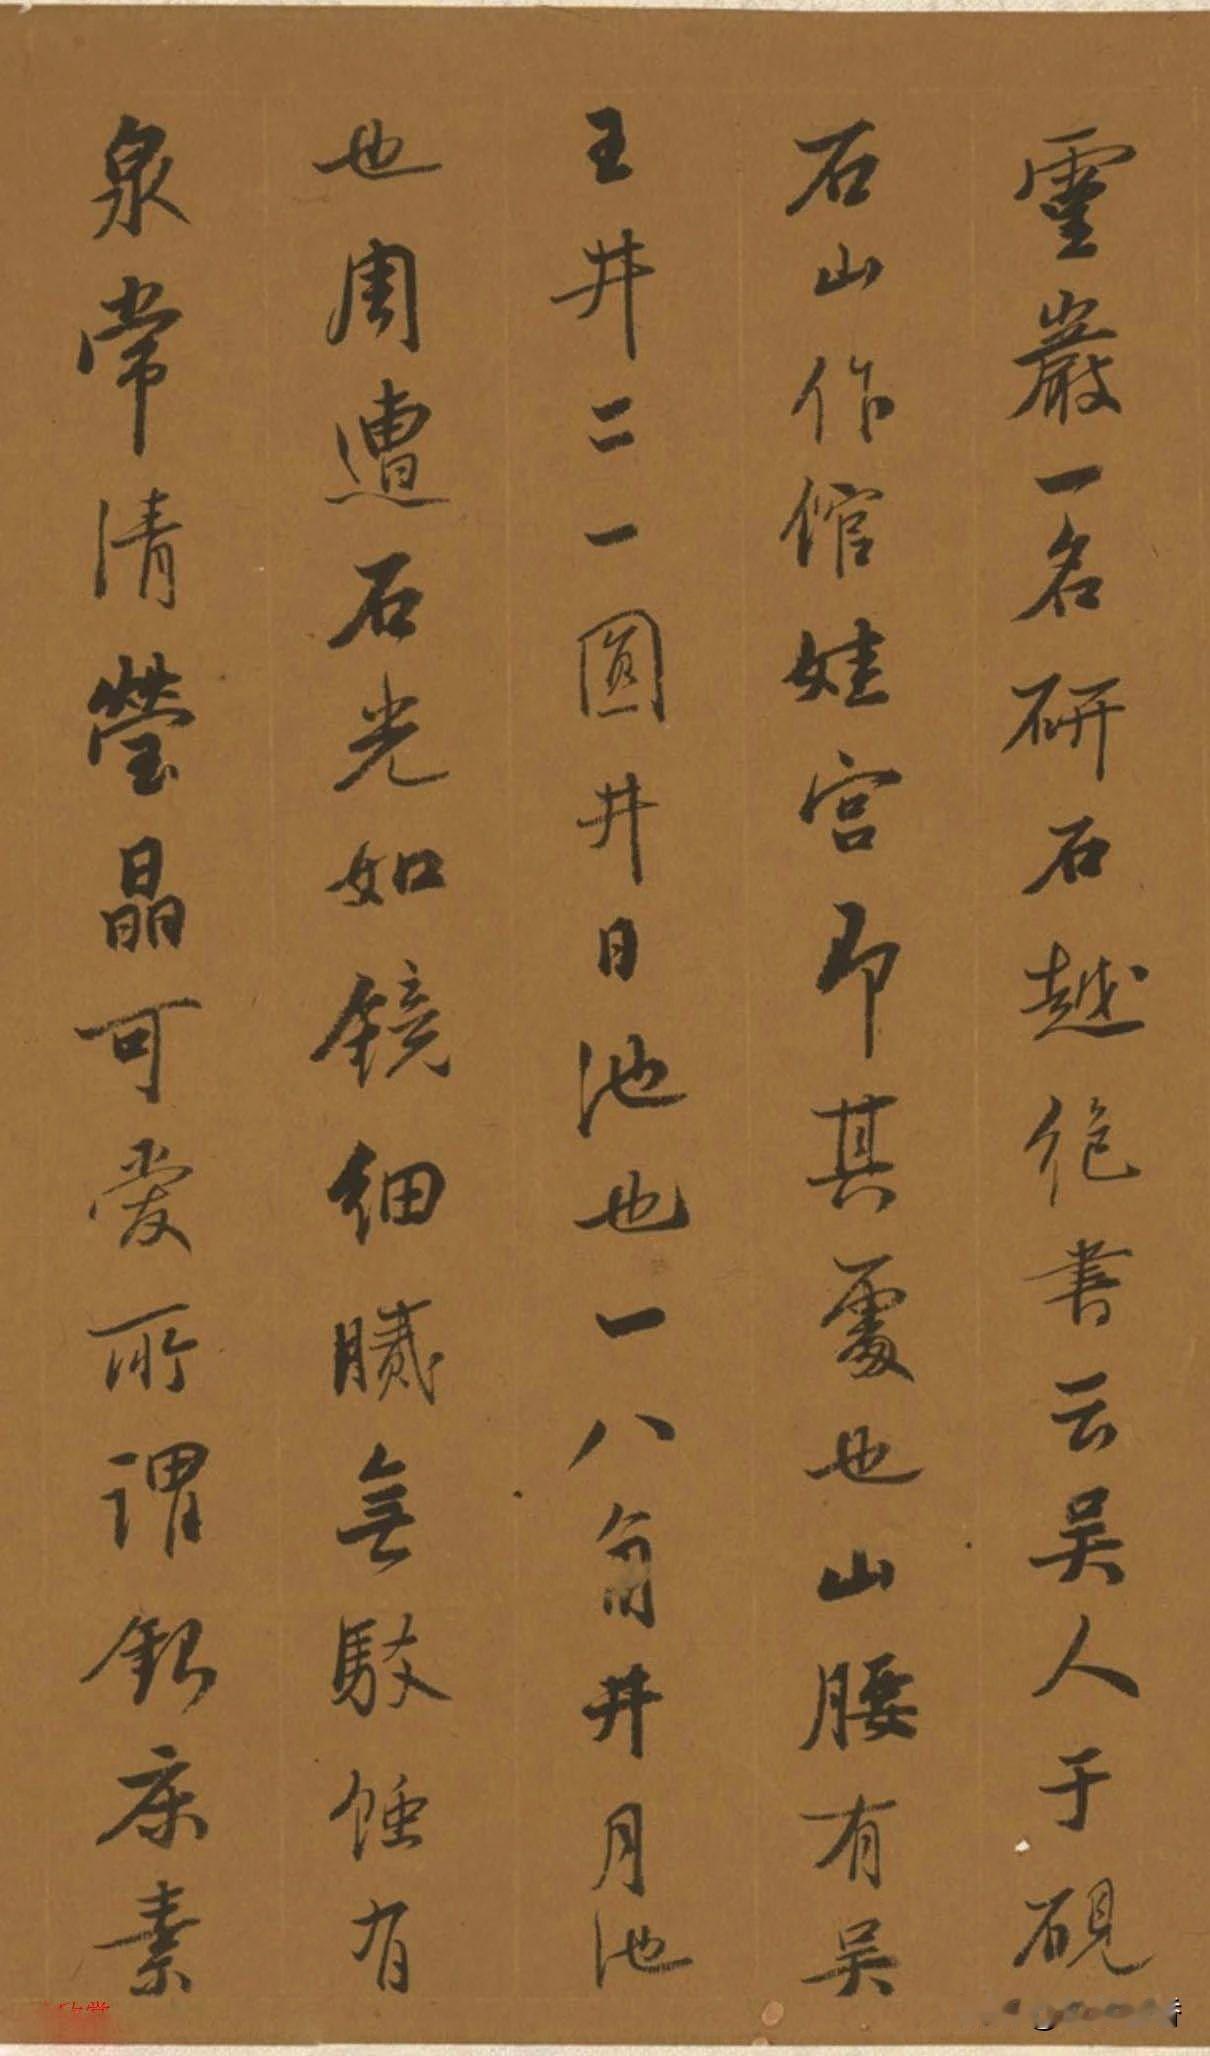 靈巖一名研石越絶書云吴人于硯
石山作館娃宫即其處也山腰有吴
王井二一圓井日池也一八角井月池
也周遭石光如鏡細膩無駁蝕有
泉常清瑩晶可愛所謂銀床素